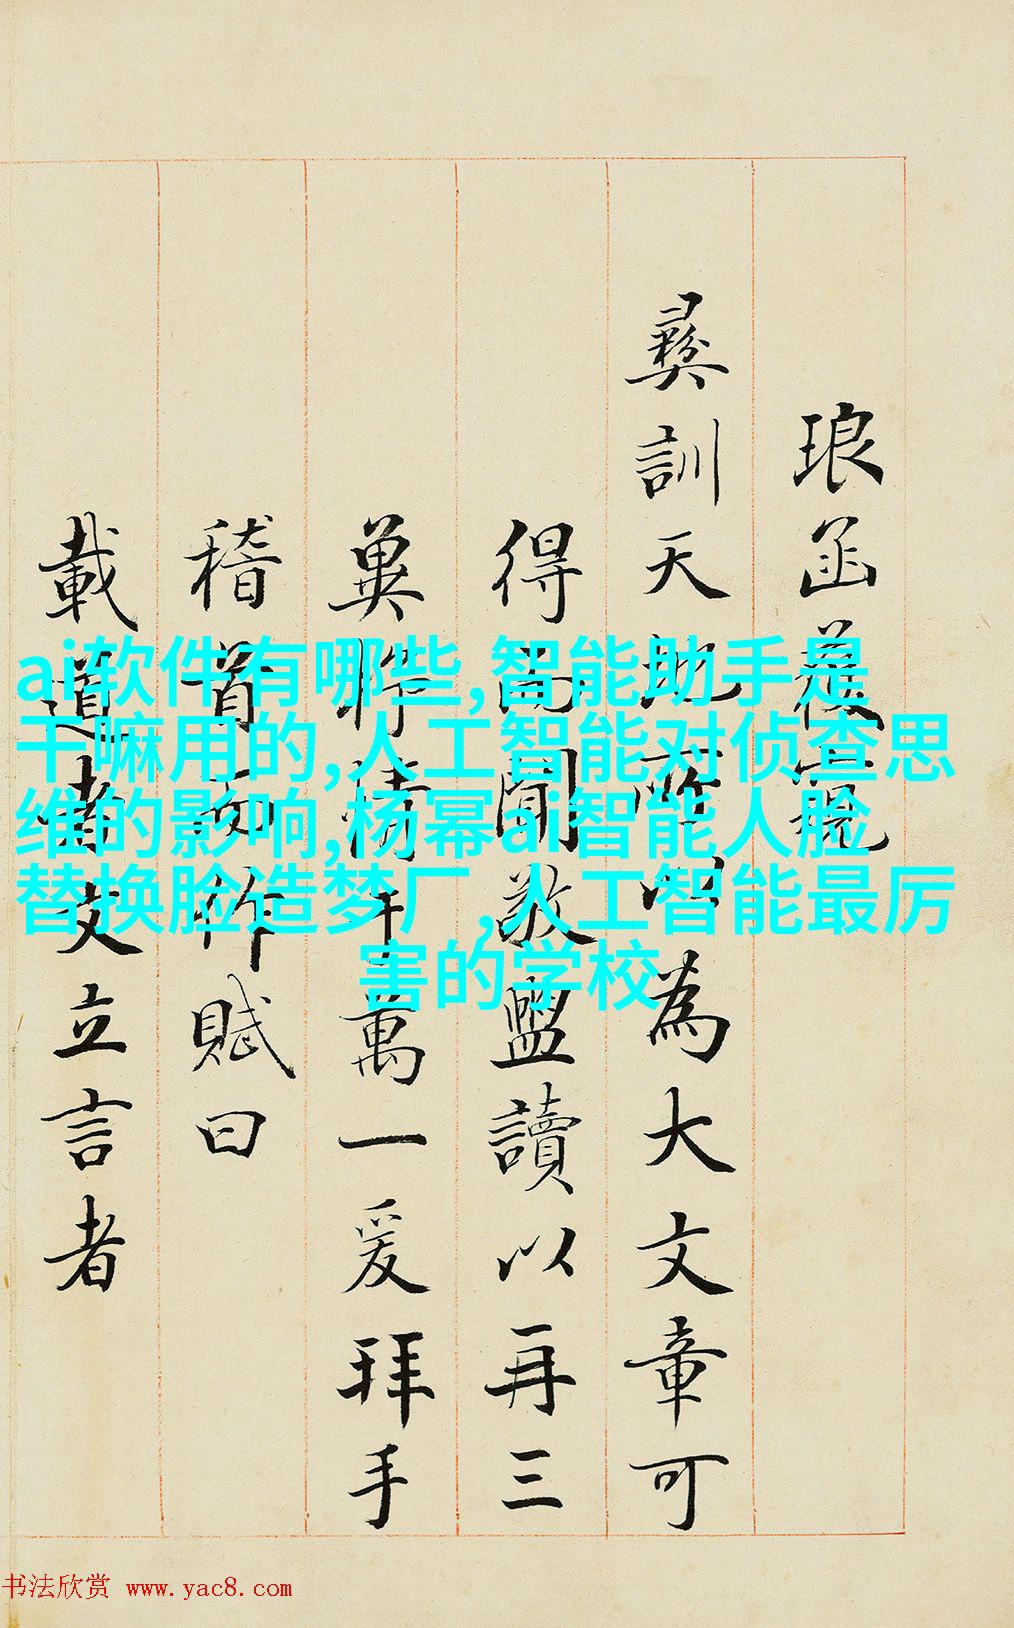 琅函複寵
彝訓天地所以為大文章可
得而聞敬盥讀以再三
冀聆揚于萬一爰拜手
稽首而作賦曰
載道者文立言者
ai软件有哪些,智能助手是
干嘛用的,人工智能对侦查思
维的影响,杨幂ai智能人脸
替换脸造梦厂,人工智能最厉
害的学校
书法欣赏 www.yac8.com